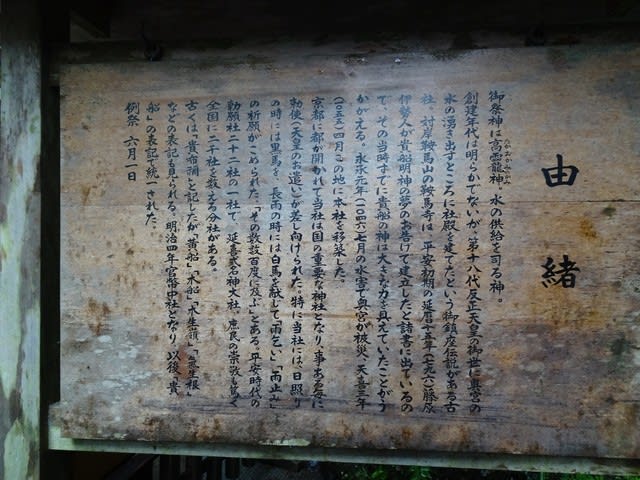 由緒
御祭神は高龗神、水の供給を司る神。
創建年代は明らかでないが、第十八代反正天皇の御世に奥宮の
水の湧き出すところに社殿を建てたという御鎮座伝説がある古
社。対岸鞍馬山の鞍馬寺は、平安初期の延暦十五年(七九六)藤原
伊勢人が貴船明神の夢のお告げで建立したと諸書に出ているの
で、その当時すでに貴船の神は大きな力を具えていたことがう
かがえる。永承元年(一〇四六)七月の水害で奥宮が被災、天喜三年
(一〇五五)四月この地に本社を移築した。
京都に都が開かれて当社は国の重要な神社となり、事ある毎に
勅使(天皇のお遣い)が差し向けられた。特に当社には、日照り
の時には黒馬を、長雨の時には白馬を献じて「雨乞い」「雨止み」
の祈願がこめられた。「その数数百度に及ぶ」とある。平安時代の
勅願社、二十二社の一社で、延喜式名神大社、庶民の崇敬も篤く
全国に二千社を数える分社がある。
古くは「貴布禰」と記したが「黄船」「木船」「木生嶺」「気生根」
などの表記も見られる。明治四年官幣中社となり、以後「貴
船」の表記で統一された。
例祭 六月一日